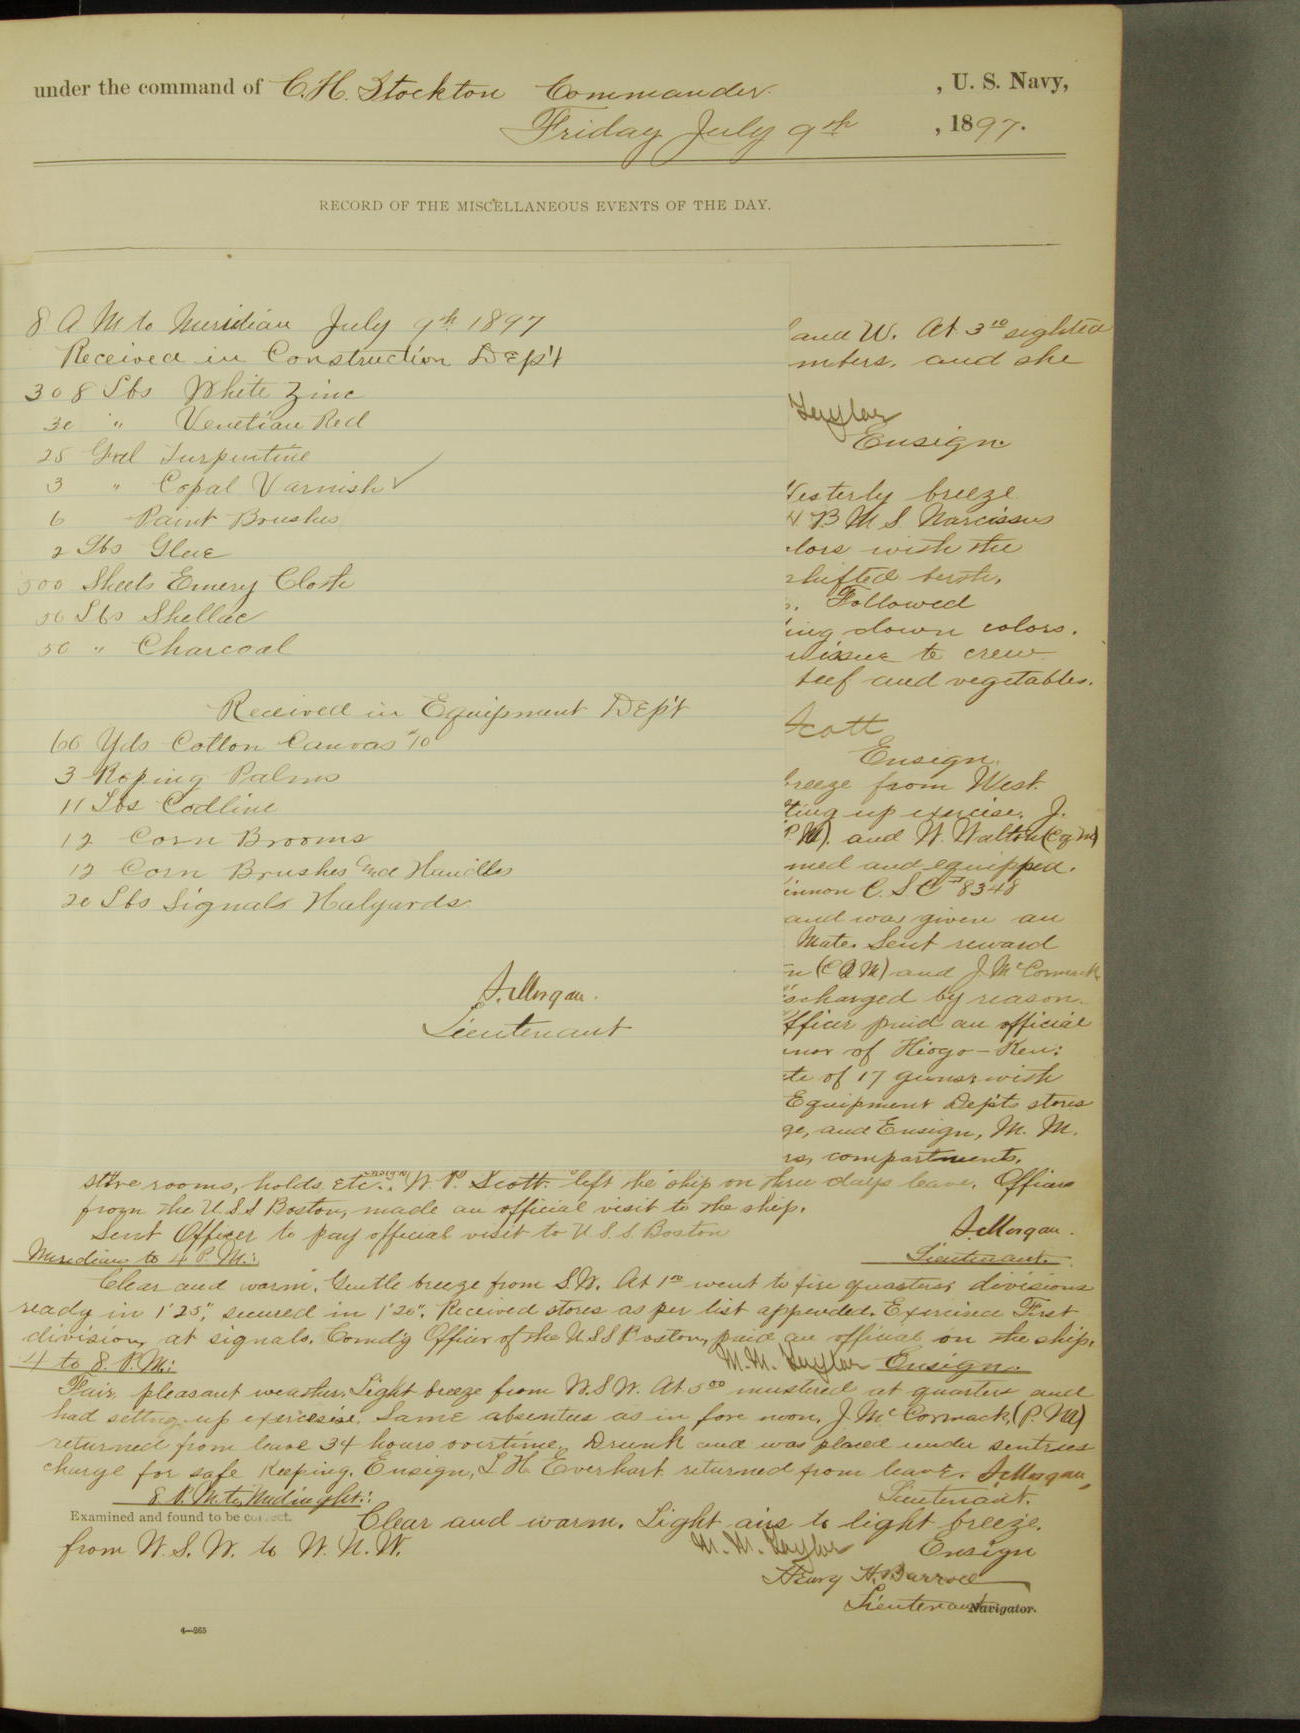 under the command of C. H. Stockton Commander , U. S. Navy,
Friday July 9th , 1897.
RECORD OF THE MISCELLANEOUS EVENTS OF THE DAY.
8 A M to Meridian July 9th 1897
Received in Construction DEp't
308 Lbs White Zinc
30 " Venetian Red
25 Gal Turpentine
3 " Copal Varnish ✓
6 Paint Brushes
2 Lbs Glue
500 Sheets Emery Cloth
50 Lbs Shellac
50 " Charcoal
Received in Equipment DEp't
60 Yds Cotton Canvas #10
3 Roping Palms
11 Lbs Codline
12 Corn Brooms
12 Corn Brushes and Handles
20 Lbs Signals Halyards
J. Morgan.
Lieutenant
and W. At 3 10 sighted
mbers, and she
Taylor
Ensign
Westerly breeze
H B M S Narcissus
lors with the
shifted berth,
Followed
ing down colors.
issue to crew
beef and vegetables.
Scott
Ensign.
breeze from West.
ting up exercise. J.
(P. M). and W. Walton (Cox M)
med and equipped.
innon C. S. C 8348
and was given an
Mate. Sent reward
n (C Q M) and J. McCormack
ischarged by reason
fficer paid an official
nor of Hiogo-Ken:
te of 17 guns: with
Equipment Dep'ts stores
ge, and Ensign, M. M.
rs, compartments,
store rooms, holds, etc. Ensign W. P. Scott left the ship on three days leave. Officer
from the U.S.S Boston, made an official visit to the ship.
Sent Officer to pay official visit to U. S. S. Boston
J. Morgan.
Meridian to 4 P. M.: Lieutenant.
Clear and warm. Gentle breeze from S.W. At 1 10 went to fire quarters divisions
ready in 1' 25", secured in 1' 20". Received stores as per list appended. Exercised First
division, at signals. Comd'g Officer of the U.S.S Boston, paid an official on the ship.
4 to 8. P. M.: M. M. Taylor Ensign.
Fair, pleasant weather. Light breeze from W.S.W. At 5 00 mustered at quarters and
had setting-up exercise. Same absentees as in fore noon. J. McCormack, (P. M)
returned from leave 34 hours overtime, Drunk and was placed under sentries
charge for safe keeping. Ensign, L H Everhart returned from leave. J. Morgan,
8 P. M. to Midnight: Lieutenant.
Examined and found to be correct. Clear and warm. Light airs to light breeze.
from W. S. W. to W. N. W. M. M. Taylor Ensign
Henry H. Barroll
Lieutenant Navigator.
4—265